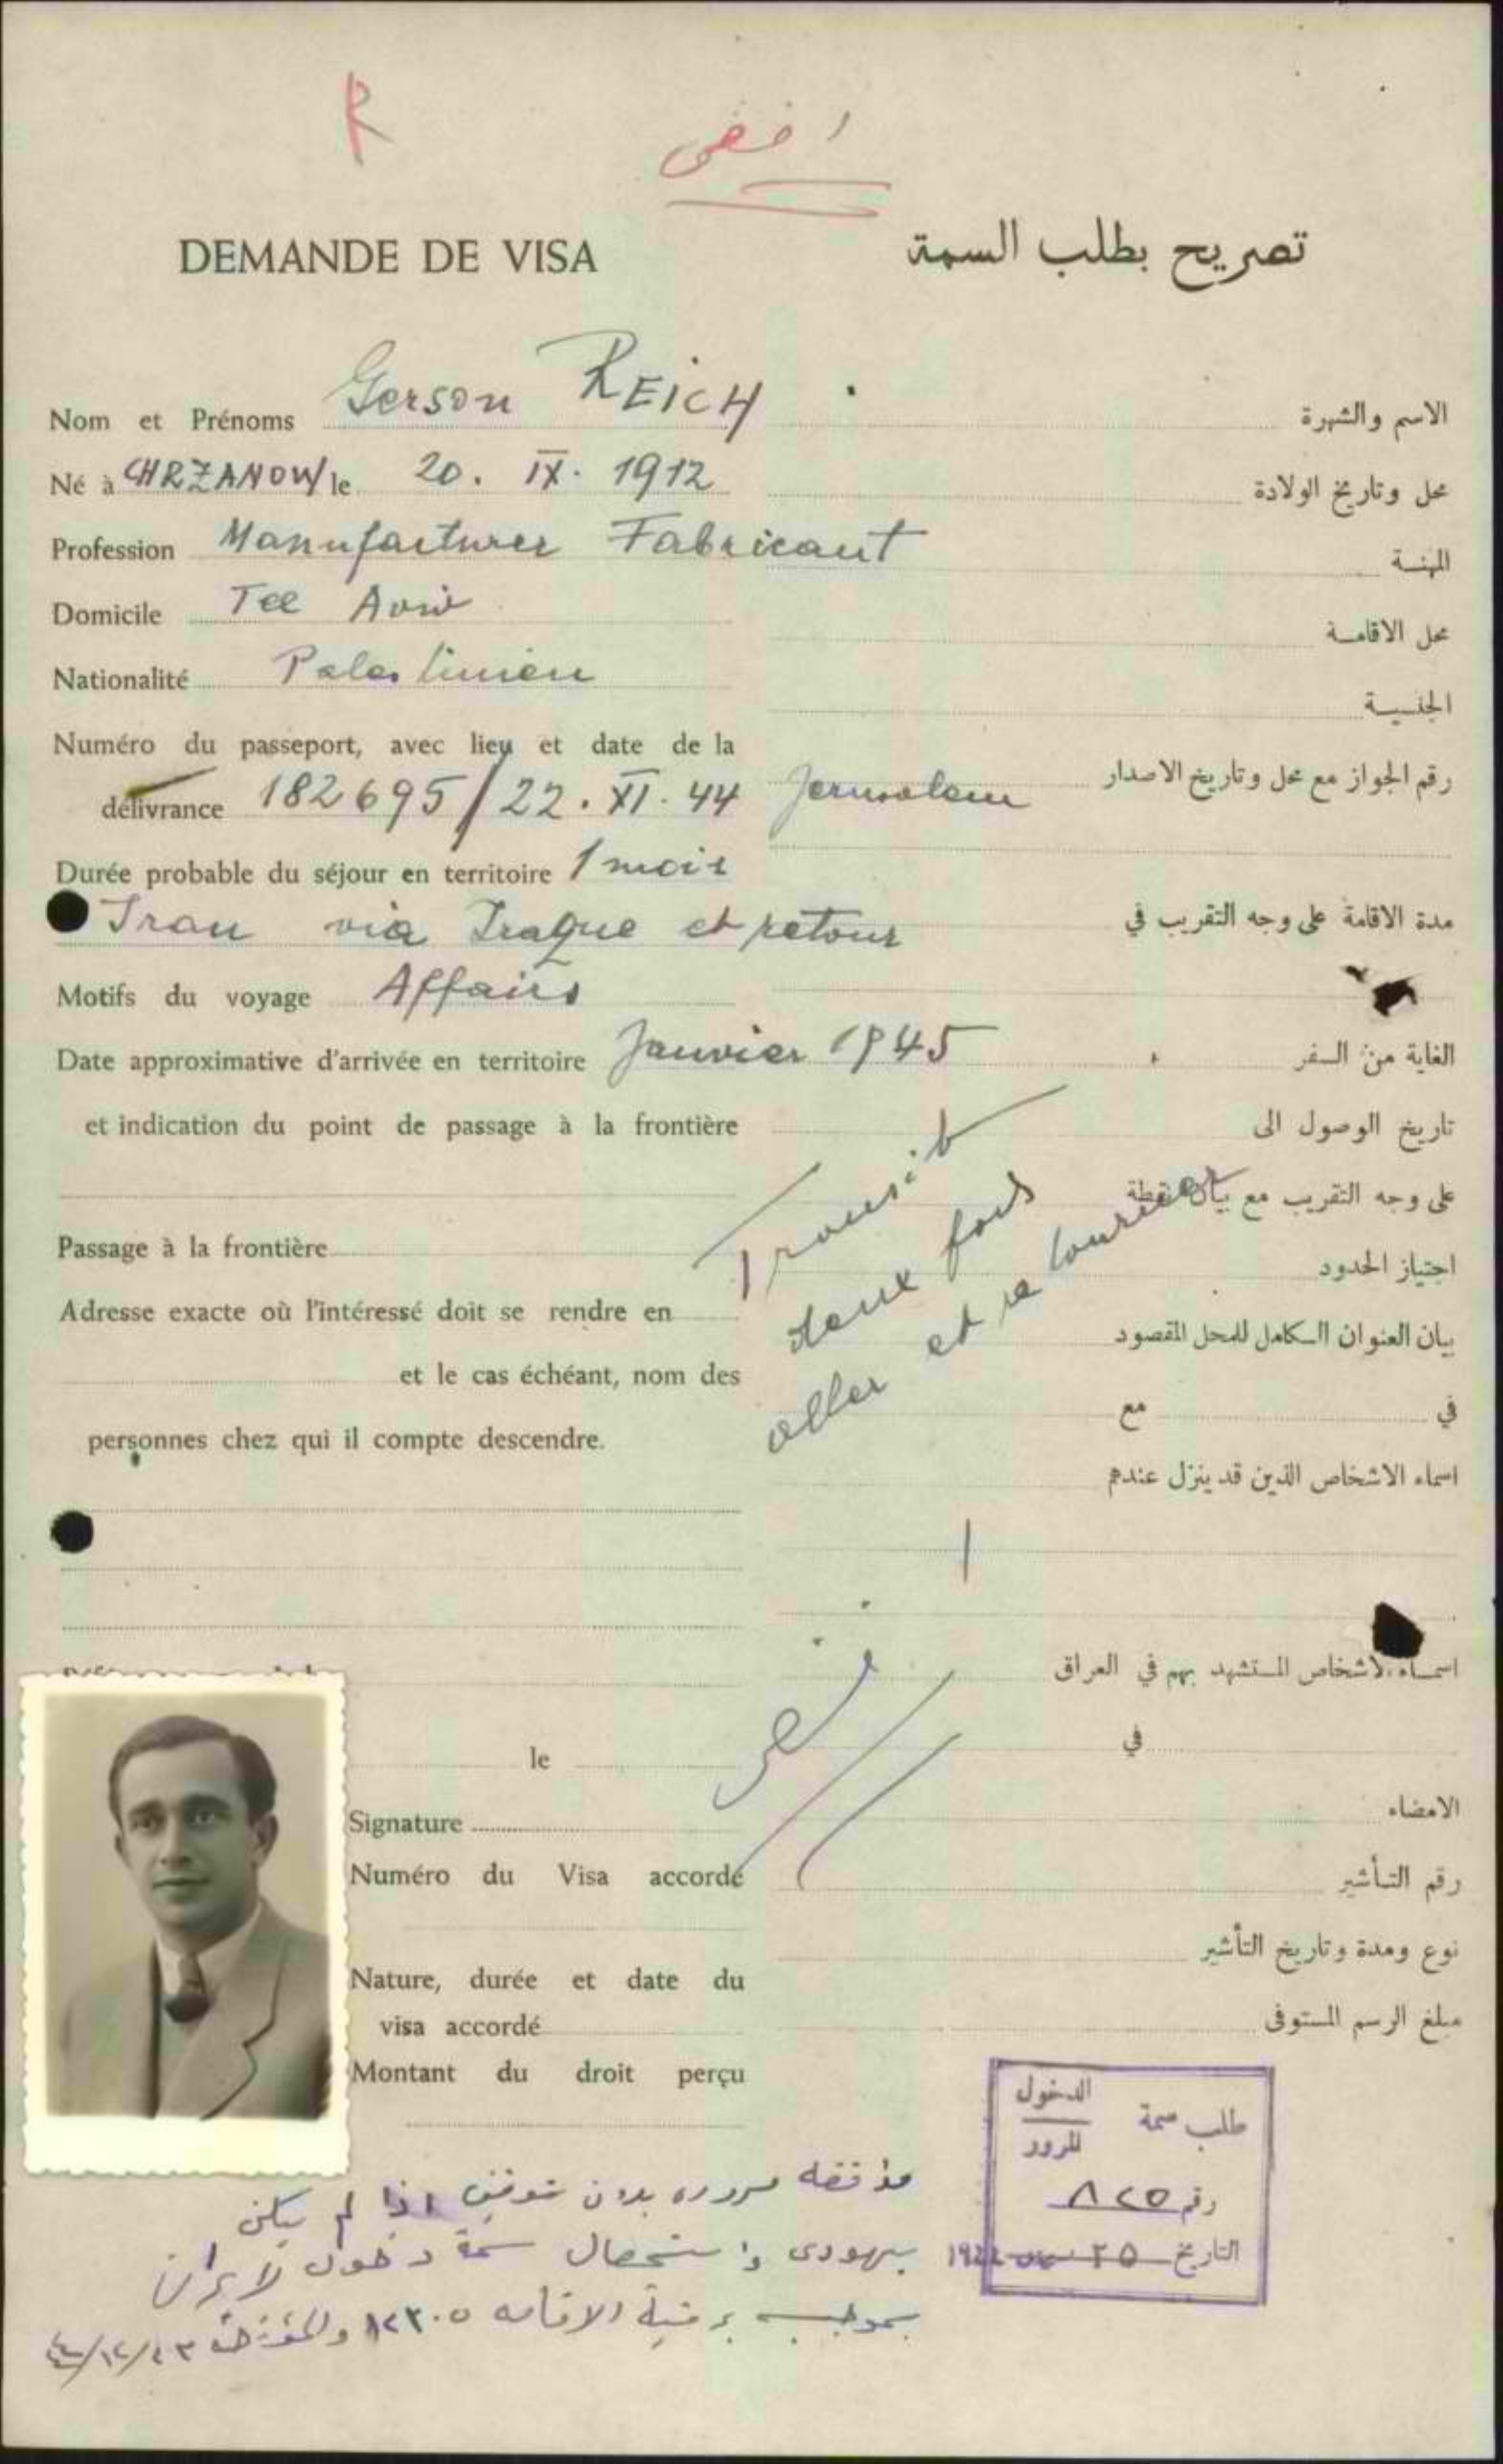 R
رفض
DEMANDE DE VISA
تصريح بطلب السمة
Nom et Prénoms Gerson REICH
الاسم والشهرة
Né à CHRZANOW le 20. IX. 1912
محل وتاريخ الولادة
Profession Manufacturer Fabricant
المهنة
Domicile Tel Aviv
محل الاقامة
Nationalité Palestinien
الجنسية
Numéro du passeport, avec lieu et date de la
délivrance 182695/22. XI. 44 Jerusalem
رقم الجواز مع محل وتاريخ الاصدار
Durée probable du séjour en territoire 1 mois
Iran via Iraque et retour
مدة الاقامة على وجه التقريب في
Motifs du voyage Affairs
Date approximative d'arrivée en territoire Janvier 1945
الغاية من السفر
et indication du point de passage à la frontière
تاريخ الوصول الى
على وجه التقريب مع بيان نقطة
Passage à la frontière
اجتياز الحدود
Transit
deux fois
aller et retourner
Adresse exacte où l'intéressé doit se rendre en
بيان العنوان الكامل للمحل المقصود
et le cas échéant, nom des
في مع
personnes chez qui il compte descendre.
اسماء الاشخاص الذين قد ينزل عندهم
اسماء الاشخاص المستشهد بهم في العراق
le
في
Signature
الامضاء
Numéro du Visa accordé
رقم التأشير
Nature, durée et date du
visa accordé
نوع ومدة وتاريخ التأشير
Montant du droit perçu
مبلغ الرسم المستوفى
طلب سمة الدخول
للمرور
رقم ٨٢٥
التاريخ ٢٥
مروره بدون توقف اذا لم يكن
يهودي واستحصال سمة دخول لايران
بموجب برقية الاقامه ١٢٣٠٥ والمؤرخة